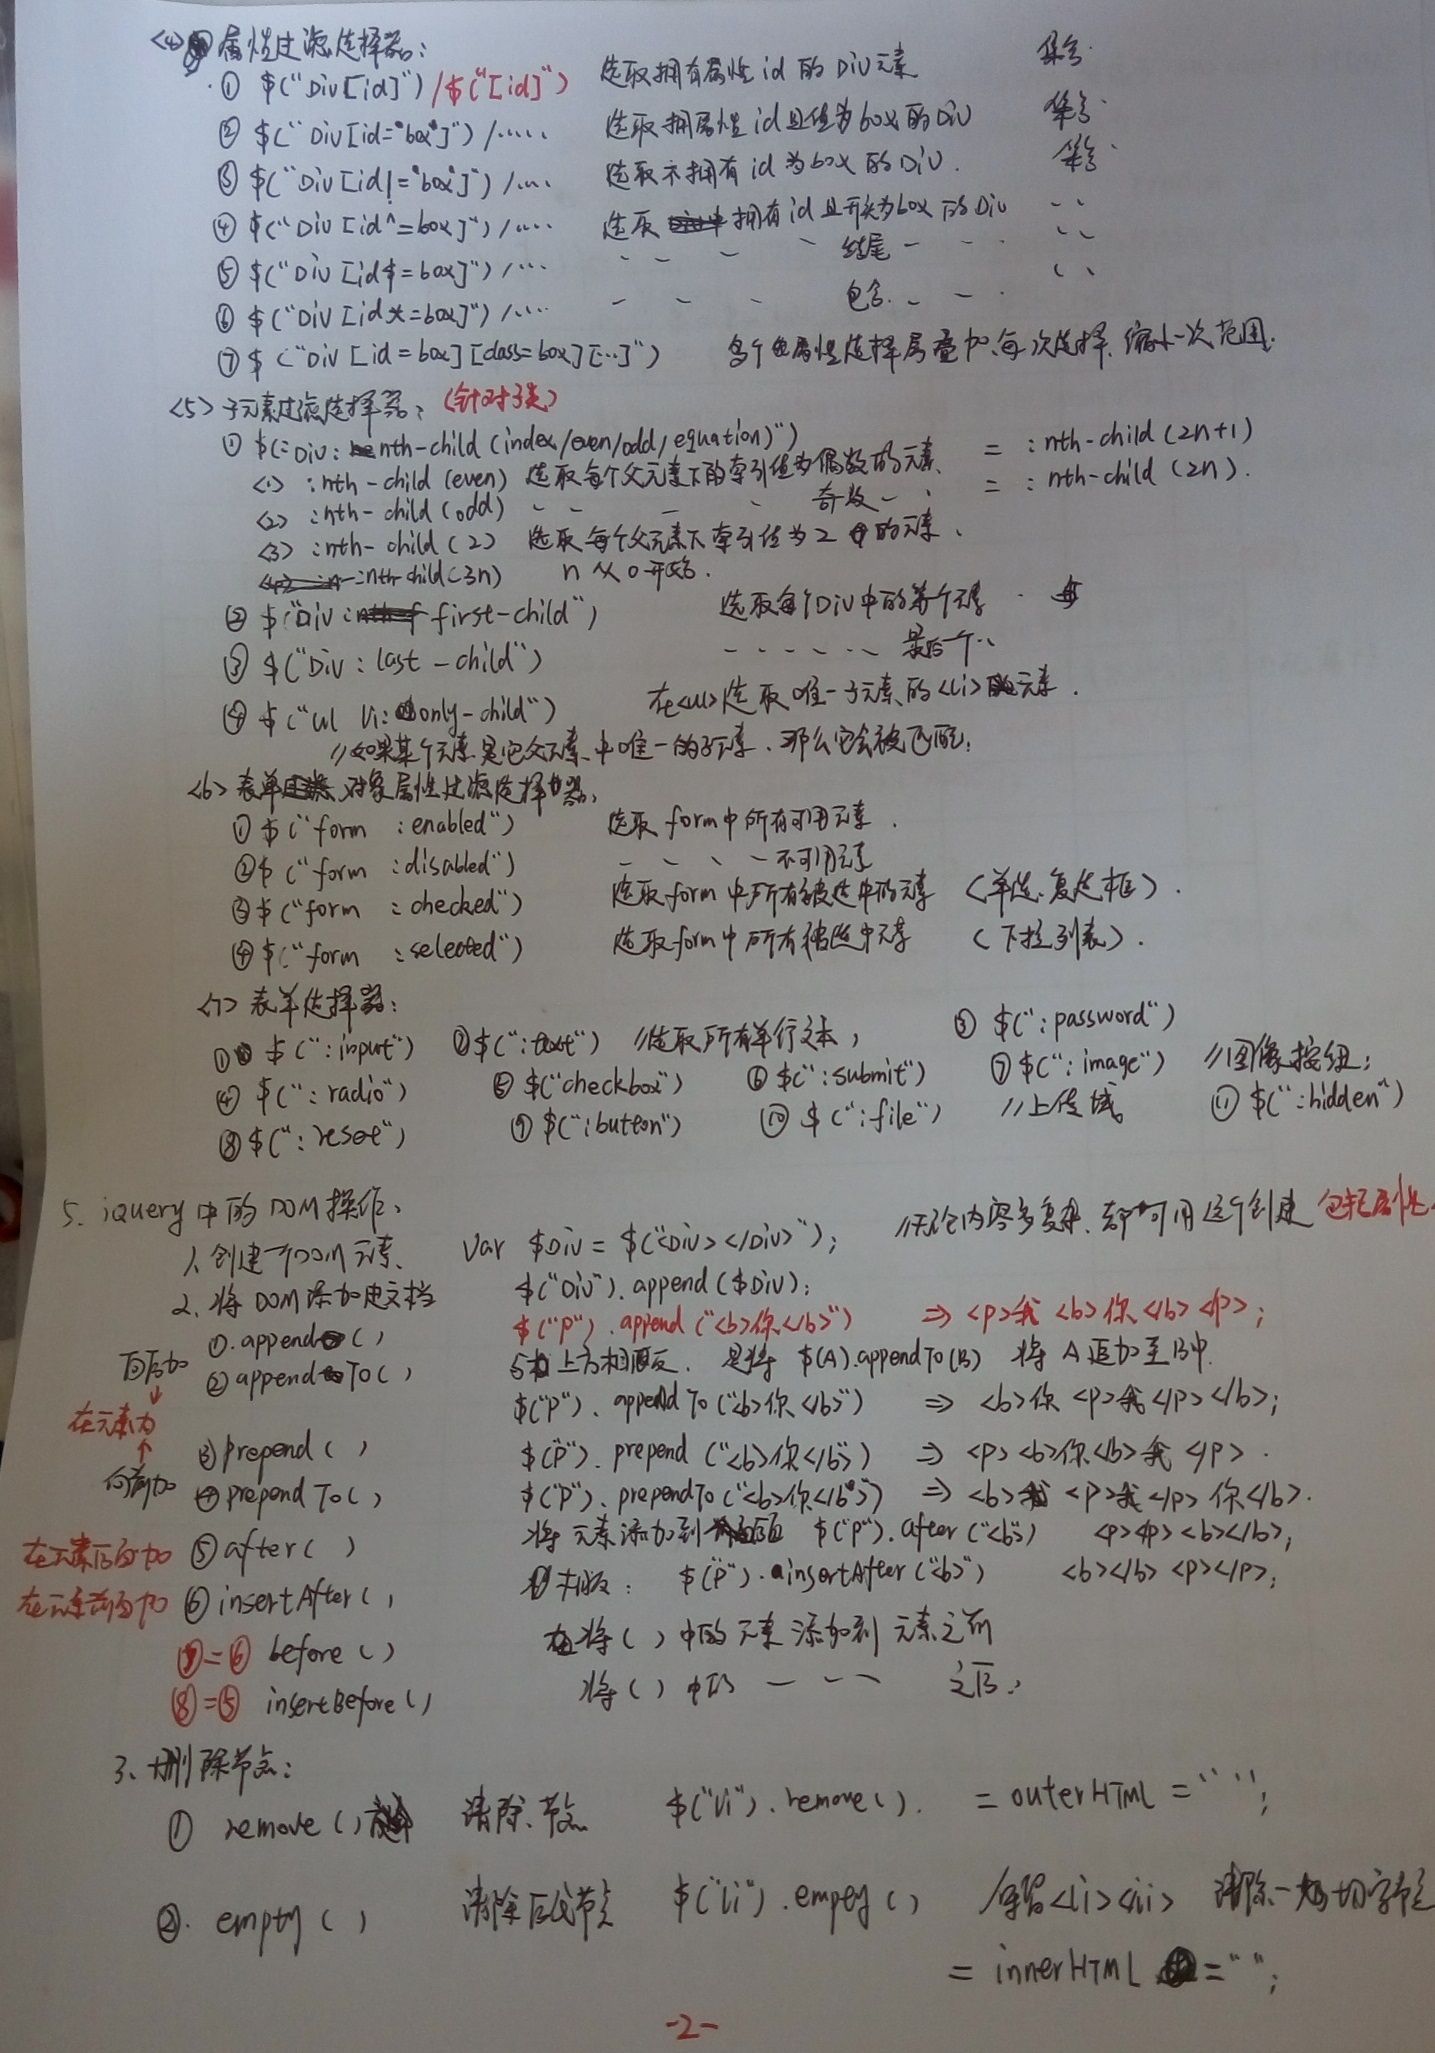 <4> 属性过滤选择器:
① $("Div[id]") /$("[id]") 选取拥有属性id的Div元素 集合.
② $("Div[id="box"]") /..... 选取拥属性id且值为box的Div 集合.
③ $("Div[id!="box"]") /.... 选取不拥有id为box的Div. 集合.
④ $("Div [id^=box]") /.... 选取 拥有id且开头为box的Div
⑤ $("Div [id$=box]") /... 结尾
⑥ $("Div [id*=box]") /.... 包含.
⑦ $ ("Div [id=box][class=box][...]") 多个属性选择器叠加.每次选择.缩小一次范围.
<5> 子元素过滤选择器: (针对子类)
① $(:Div: nth-child (index/even/odd/equation)")
<1> :nth-child (even) 选取每个父元素下的索引值为偶数的元素. = :nth-child (2n+1)
<2> :nth-child (odd) - - - - 奇数 - . = :nth-child (2n).
<3> :nth-child (2) 选取每个父元素下索引值为2的元素.
nth-child(3n) n从0开始.
② $("Div: first-child") 选取每个Div中的第个元素
③ $("Div: last-child") - - - - - 最后一个..
④ $("ul li: only-child") 在<ul>选取唯一子元素的<li>元素.
//如果某个元素是它父元素中唯一的子元素.那么它会被匹配;
<6> 表单 对象属性过滤选择器;
① $("form :enabled") 选取form中所有可用元素.
② $("form :disabled") - - - - 不可用元素
③ $("form :checked") 选取form中所有被选中的元素 (单选.复选框).
④ $("form :selected") 选取form中所有被选中元素 (下拉列表).
<7> 表单选择器:
① $(":input") ② $(":text") //选取所有单行文本; ③ $(":password")
④ $(":radio") ⑤ $("checkbox") ⑥ $(":submit") ⑦ $(":image") //图像按钮;
⑧ $(":reset") ⑨ $(":button") ⑩ $(":file") //上传域。 ⑪ $(":hidden")
5. jquery中的DOM操作.
1. 创建一个DOM元素. Var $Div = $("<Div></Div>"); //无论内容多复杂.都可用这个创建 包括属性.
2. 将DOM添加进文档 $("Div").append($Div);
①. append() $("p").append("<b>你</b>") ⇒ <p>我<b>你</b><p>;
向后加 ② appendTo() 与上方相反. 是将 $(A).appendTo(B) 将A追加至B中.
在元素内 $("P").appendTo("<b>你</b>") ⇒ <b>你<p>我</p></b>;
③ prepend() $("P").prepend("<b>你</b>") ⇒ <p><b>你</b>我</p>.
向前加 ④ prependTo() $("P").prependTo("<b>你</b>") ⇒ <b> <p>我</p>你</b>.
在元素后面加 ⑤ after() 将元素添加到 后面 $("p").after("<b>") <p><p><b></b>;
在元素前面加 ⑥ insertAfter() 相反: $("p").insertAfter("<b>") <b></b><p></p>;
⑦=⑥ before() 将()中的元素添加到元素之前
⑧=⑤ insertBefore() 将()中的 - - - 之后.;
3. 删除节点:
① remove() 清除.节点 $("li").remove(). = outerHTML = "";
②. empty() 清除后代节点 $("li").empty() /保留<li></li> 清除一切字节
= innerHTML = "";
-2-